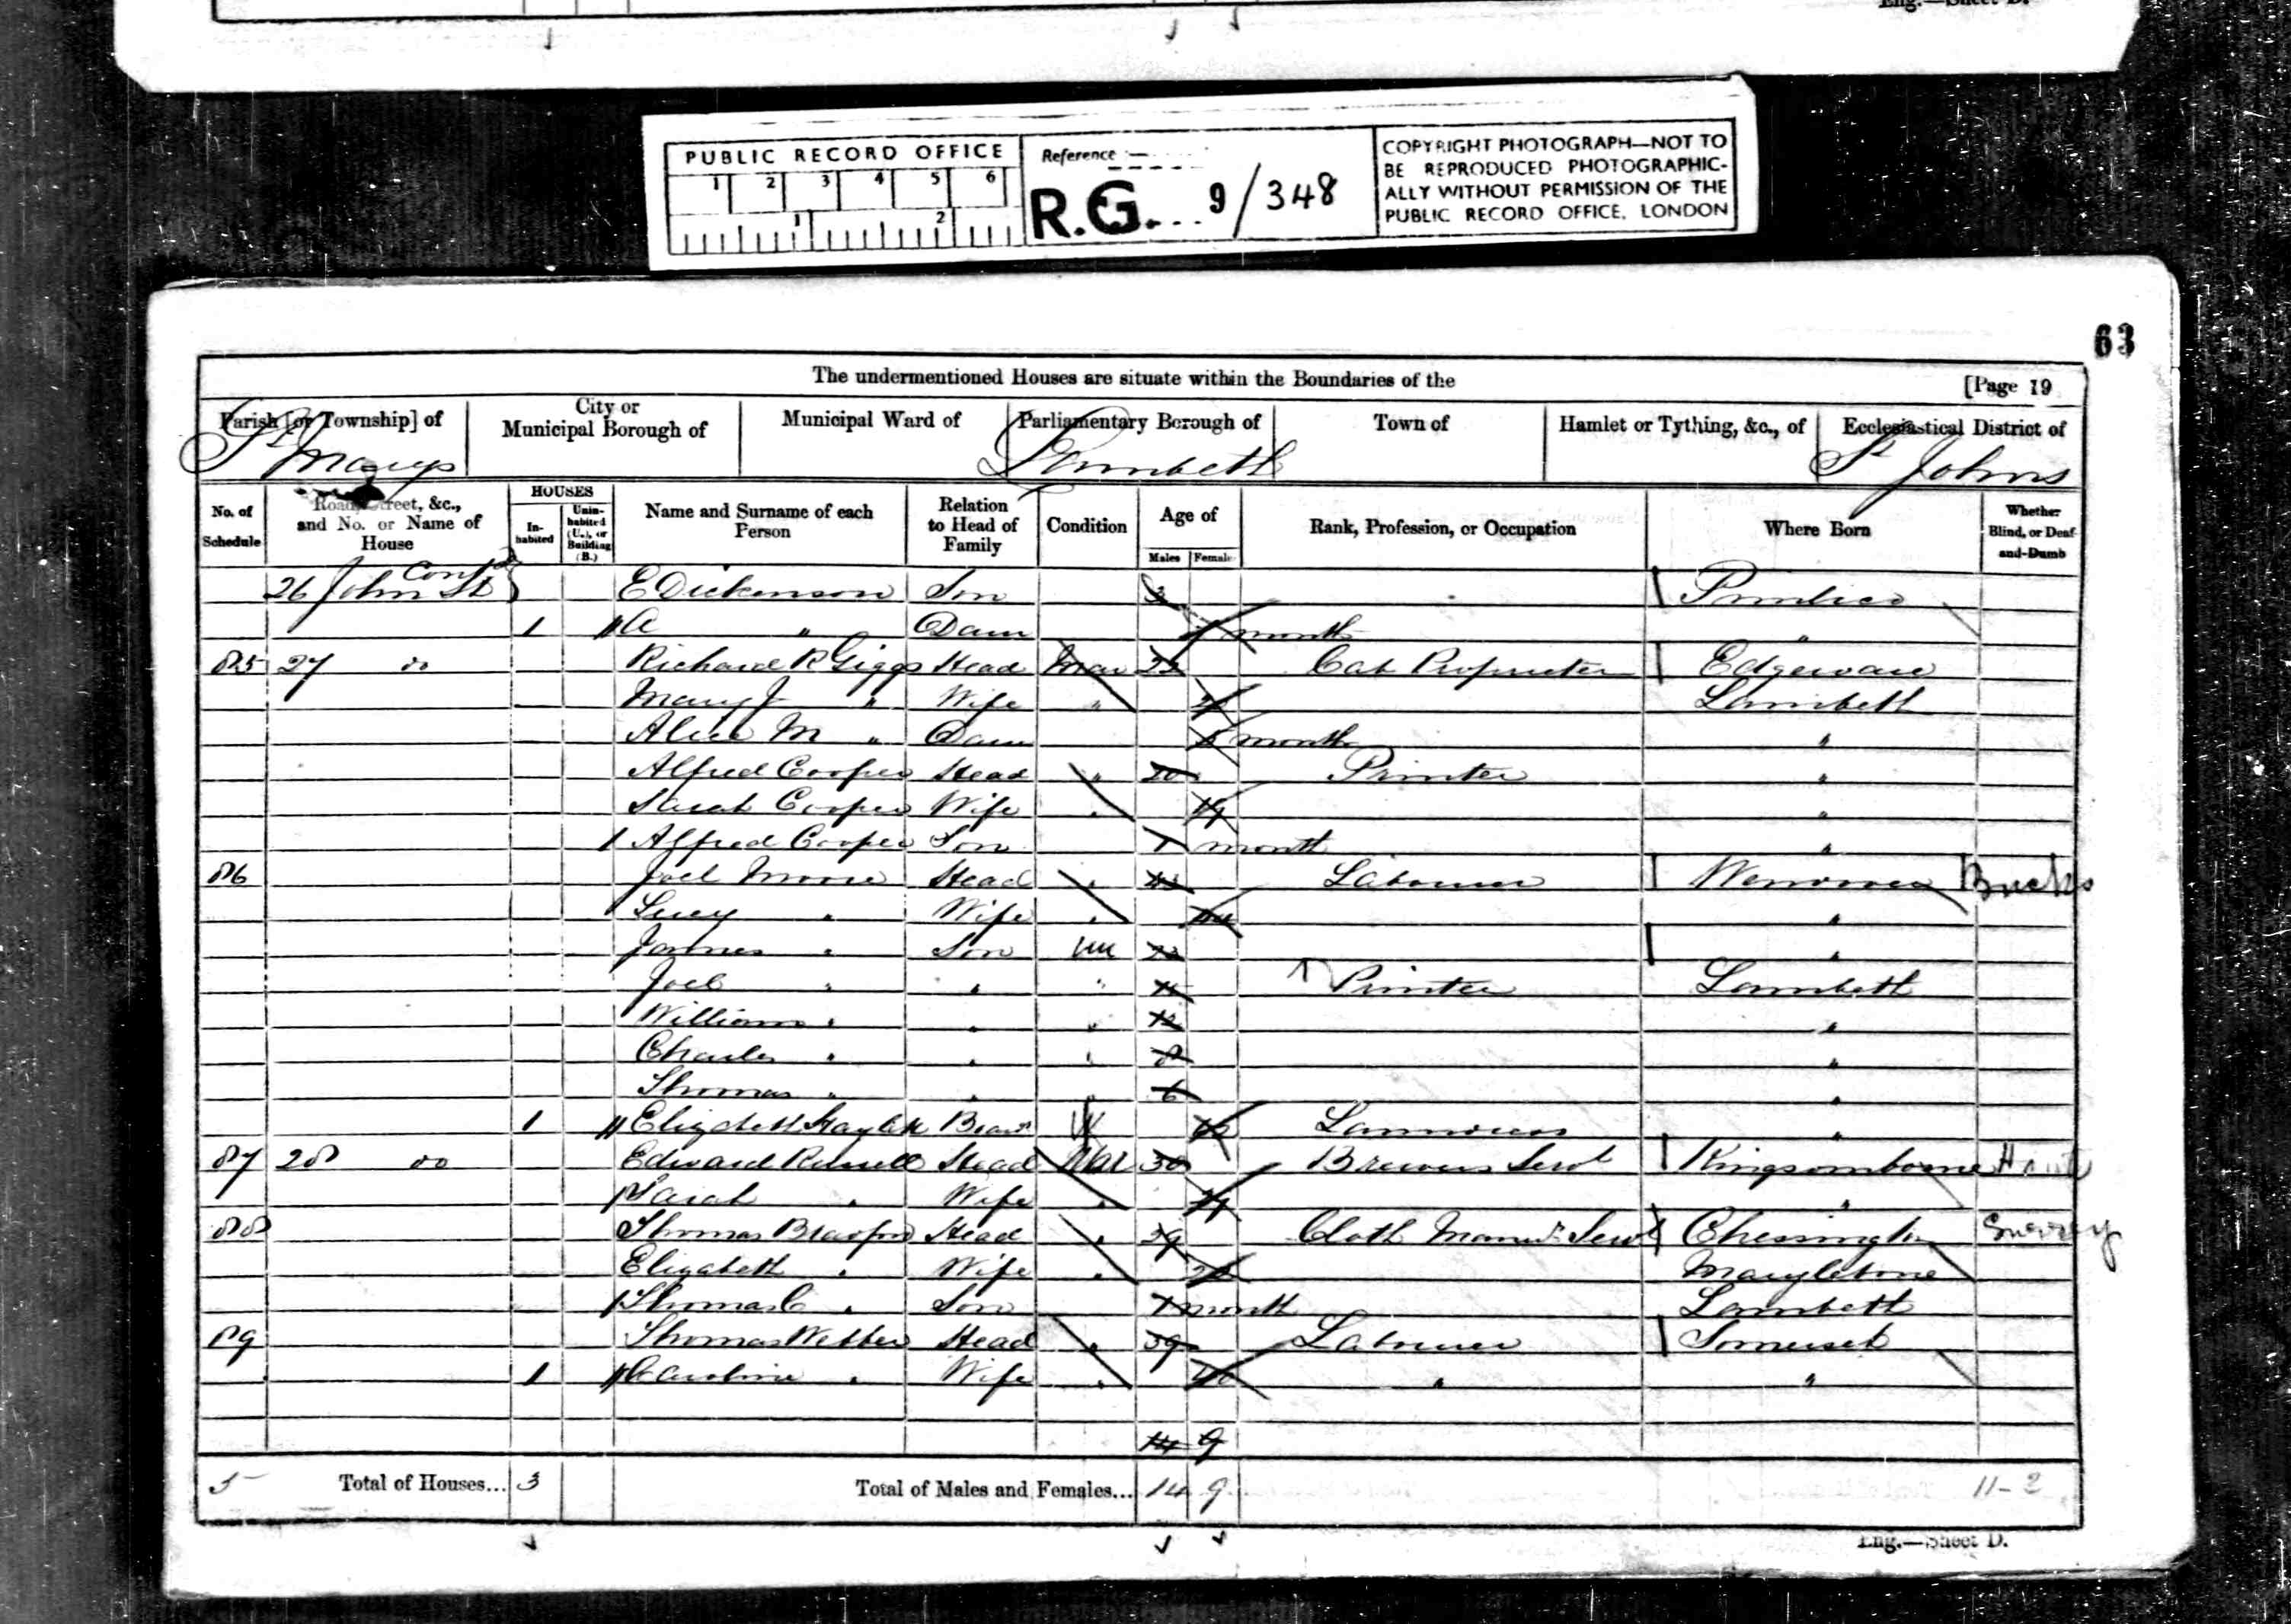 Eng.—Sheet D.
PUBLIC RECORD OFFICE
1 2 3 4 5 6
1 2
Reference :—
R.G. 9/348
COPYRIGHT PHOTOGRAPH—NOT TO
BE REPRODUCED PHOTOGRAPHIC-
ALLY WITHOUT PERMISSION OF THE
PUBLIC RECORD OFFICE, LONDON
63
The undermentioned Houses are situate within the Boundaries of the
[Page 19
Parish [or Township] of City or Municipal Borough of Municipal Ward of Parliamentary Borough of Town of Hamlet or Tything, &c., of Ecclesiastical District of
St Marys Lambeth St Johns
No. of Schedule Road, Street, &c., and No. or Name of House HOUSES In-habited Unin-habited (U.), or Building (B.) Name and Surname of each Person Relation to Head of Family Condition Age of Males Females Rank, Profession, or Occupation Where Born Whether Blind, or Deaf-and-Dumb
Contd
26 John St E Dickenson Son Pimlico
1 A " Daur month "
85 27 do Richard R Giggs Head Mar 22 Cab Proprietor Edgeware
Mary J " Wife " Lambeth
Alice M " Daur month "
Alfred Cooper Head " 20 Printer "
Sarah Cooper Wife " 19 "
Alfred Cooper Son month "
86 Joel Moore Head " Labourer Bucks
Lucy " Wife " "
James " Son Un "
Joel " " " Printer Lambeth
William " " " 12 "
Charles " " " 8 "
Thomas " " 6 "
1 Elizabeth Board W Laundress "
87 28 do Edward Russell Head Mar 30 Brewers Servt Kingsomborne Hants
Sarah " Wife " "
88 Thomas Head " 29 Cloth Manur Servt Chessington Surrey
Elizabeth " Wife " Marylebone
Thomas C " Son month Lambeth
89 Thomas Webber Head " 39 Labourer Somerset
1 Caroline " Wife " " "
14 9
5 Total of Houses... 3 Total of Males and Females... 14 9 11-2
Eng.—Sheet D.